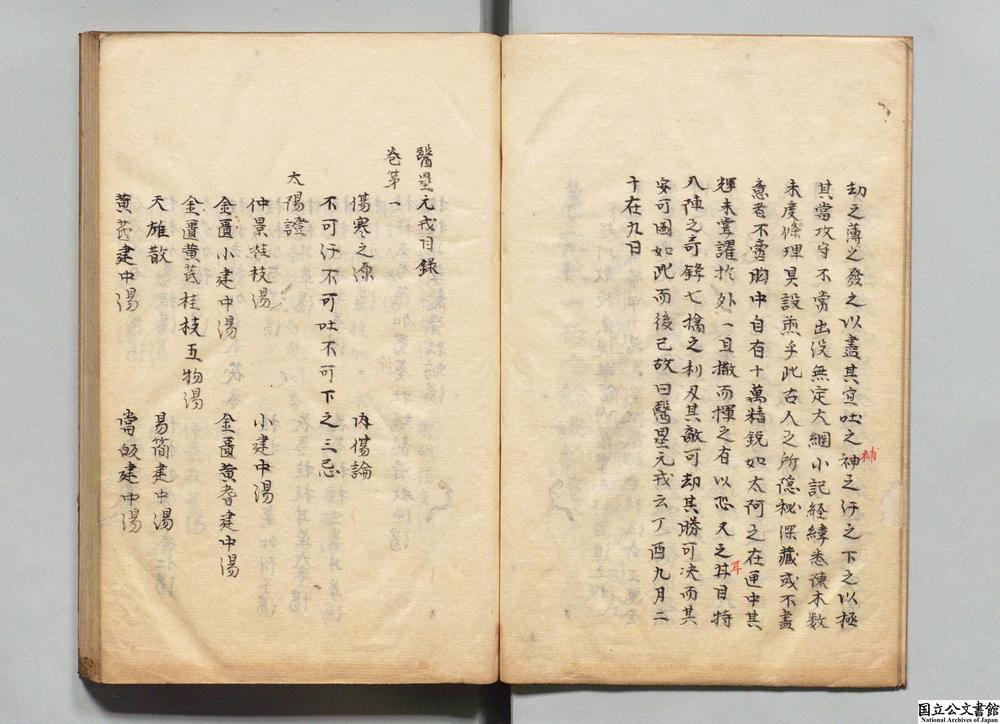 劫之薄之發之以盡其宜吐之神之汗之下之以極
補
其當攻守不常出没無定大綱小記経緯悉陳本数
末度條理具設煎乎此古人之所隠秘深藏或不盡
意者不啻胸中自有十萬精鋭如太阿之在匣中其
輝未嘗讙於外一旦撒而揮之有以恐人之其目特
耳
八陣之奇鋒七擒之利刃其敵可却其勝可决而其
安可固如此而後已故曰醫壘元戎云丁酉九月二
十在九日
醫壘元戎目錄
卷第一
傷寒之源　内傷論
不可汗不可吐不可下之三忌
太陽證
仲景桂枝湯　小建中湯
金匱小建中湯　金匱黄耆建中湯
金匱黄芪桂枝五物湯
天雄散　易簡建中湯
黄芪建中湯　當皈建中湯
国立公文書館
National Archives of Japan